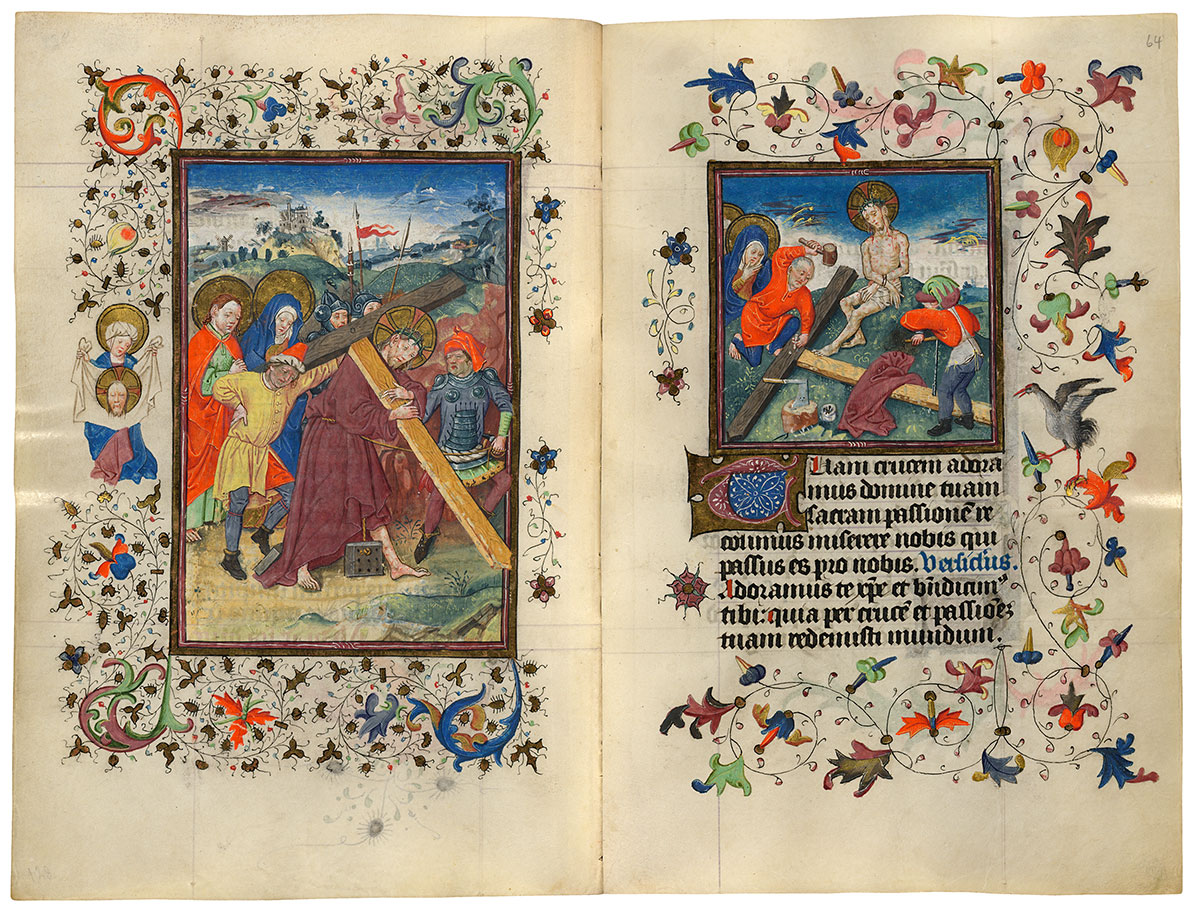 64
Tuam crucem adora
mus domine tuam
sacram passionē re
colimus miserere nobis qui
passus es pro nobis. Versiclus.
Adoramus te xp̄e et bn̄dicim⁹
tibi: quia per crucē et passioēz
tuam redemisti mundum.